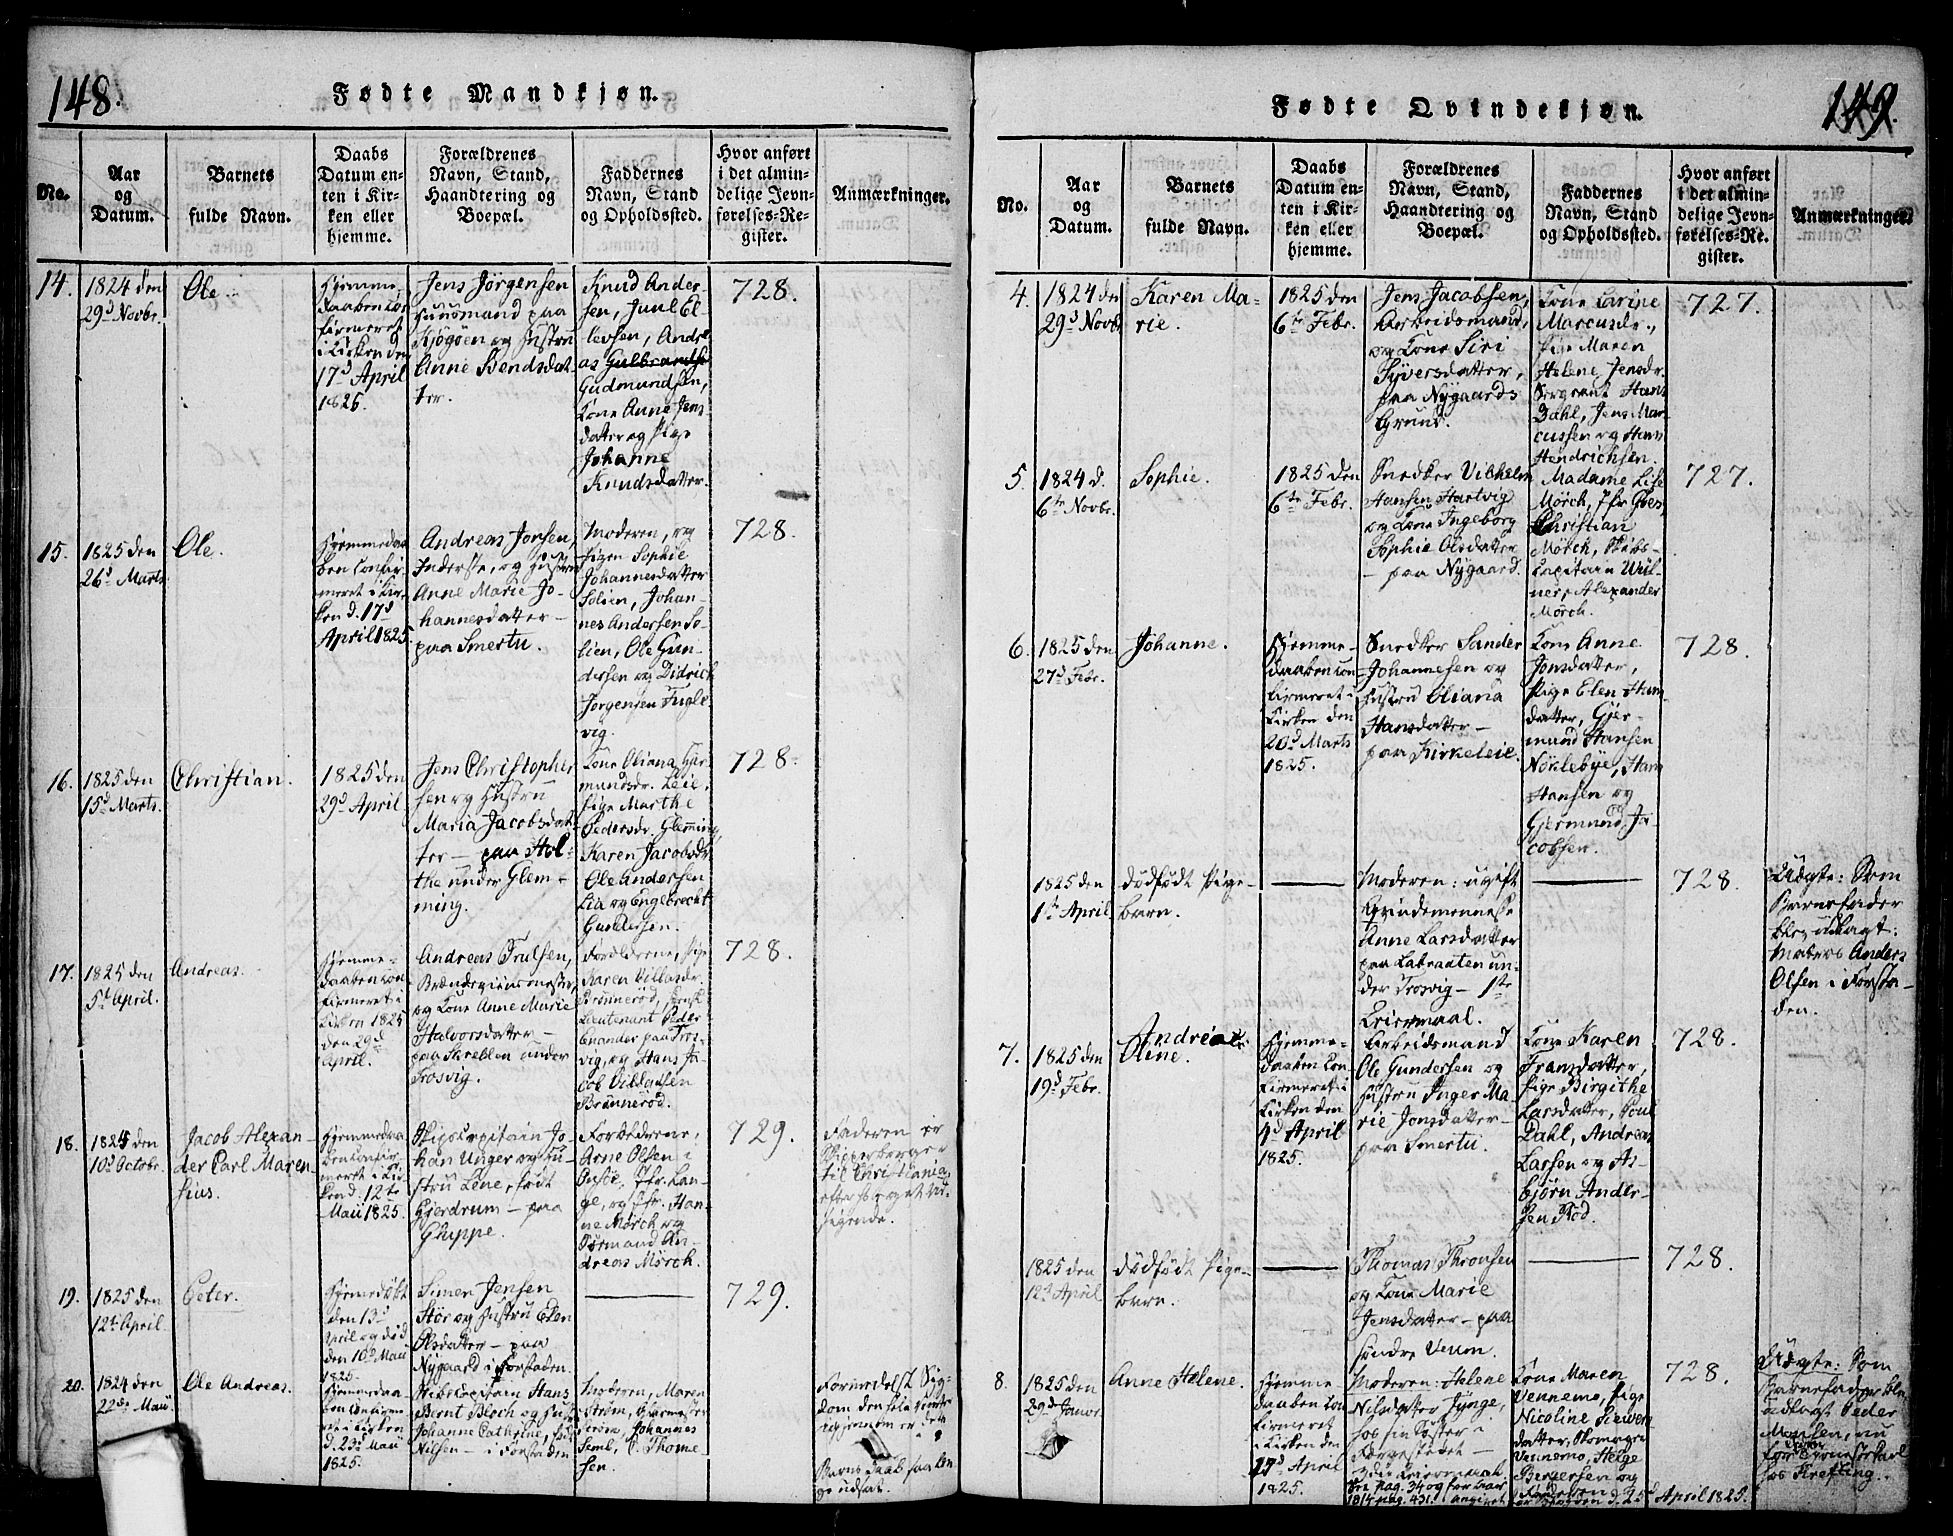 148.
Fødte Mandkjøn.
No.
Aar
og
Datum.
Barnets
fulde Navn.
Daabs
Datum en-
ten i Kir-
ken eller
hjemme.
Forældrenes
Navn, Stand,
Haandtering og
Boepæl.
Faddernes
Navn, Stand
og Opholdssted.
Hvor anført
i det almin-
delige Jevn-
førelses-Re-
gister.
Anmærkninger.
14.
1824 den
29d Novbr.
Ole.
Hjemme-
daaben Con-
firmeret
i Kirken den
17d April
1825.
Jens Jörgensen
Huusmand paa
Kjøgøen og Hustru
Anne Bendsdat-
ter.
Knud Ander-
sen, Juul El-
levsen, Andre-
as Gulbrandse
Gudmundsen,
Kone Anne Jens-
datter og Pige
Johanne
Knudsdatter.
728.
15.
1825 den
26d Marts
Ole.
Hjemmedaa-
ben Confir-
meret i Kir-
ken d. 17d
April 1825.
Andreas Jonsen,
Inderste, og Hustru
Anne Marie Jo-
hannesdatter -
paa Smertu.
Moderen, og
Pigen Sophie
Johannesdatter
Solien, Johan-
nes Andersen So-
lien, Ole Gun-
dersen og Didrich
Jørgensen Fugle-
vig.
728.
16.
1825 den
15d Marts.
Christian.
1825 den
29d April
Jens Christopher-
sen og Hustru
Maria Jacobsdat-
ter - paa Hol-
the under Glem-
ming.
Kone Oliana Gjer-
mundsdr. Leie,
Pige Marthe
Pedersdr. Glemming,
Karen Jacobsdr.
Ole Andersen
Lia og Engebrecht
Gundersen.
728.
17.
1825 den
5t April.
Andreas.
Hjemme-
daaben Con-
firmeret i
Kirken 1825
den 29d
April.
Andreas Trulsen,
Brændeviinsmester,
og Kone Anne Marie
Halvorsdatter -
paa Skrellen under
Trosvig.
Forældrene, Pige
Karen Villadsdr.
Brönneröd,
Lieutenant Peder
Enander paa Tros-
vig, og Hans Ja-
cob Villadsen
Brönneröd.
728.
18.
1824 den
10d Octobr.
Jacob Alexan-
der Carl Maren-
sius.
Hjemmedaa-
ben Confir-
meret i Kir-
ken d. 12te
Maii 1825.
Skipscapitain Jo-
han Unger og Hu-
stru Lene, født
Gjerdrum - paa
Gluppe.
Forældrene,
Arne Olsen i
Onsöe, Jfr. Lan-
ge, og Jfr. Han-
ne Mörch og
Formand An-
dreas Mörch.
729.
Faderen er
Skipperborger
til Christiania
efter eget Ud-
sigende.
19.
1825 den
12te April
Peter.
Hjemmedöbt
den 13d
April og död
den 10d Maii
1825.
Simen Jensen
Stör og Hustru Elen
Olsdatter - paa
Nygaard i Forstaden.
729.
20.
1824 den
22de Maii
Ole Andreas.
Hjemmedaa-
ben Confirme-
ret i Kirken
d. 23d Maii
1825.
Skibscapitain Hans
Bernt Bloch og Hustru
Johanne Cathrine, född
Nilsen - i Forstaden
Moderen, Maren
Ström,
Ström, Johannes
Seml, C. Thome-
sen.
Formedelst Syg-
dom den hele Vinter
igjennem er dette
Barns Daab saa læn-
ge udsat.
149.
Fødte Qvindekjøn.
No.
Aar
og
Datum.
Barnets
fulde Navn.
Daabs
Datum en-
ten i Kir-
ken eller
hjemme.
Forældrenes
Navn, Stand,
Haandtering og
Boepæl.
Faddernes
Navn, Stand
og Opholdssted.
Hvor anført
i det almin-
delige Jevn-
førelses-Re-
gister.
Anmærkninger.
4.
1824 den
29d Novbr
Karen Ma-
rie.
1825 den
6te Febr.
Jens Jacobsen,
Arbeidsmand,
og Kone Siri
Syversdatter,
paa Nygaards
Grund.
Kone Karine
Marcusdr.,
Pige Maren
Helene Jensdr.
Sergeant Hans
Dahl, Jens Mar-
cussen og Hans
Hendrichsen.
727.
5.
1824 d.
6te Novbr.
Sophie.
1825 den
6te Febr.
Snedker Vilhelm
Hansen Hartvig
og Kone Ingeborg
Sophie Olsdatter
- paa Nygaard.
Madame Lise
Mörch, Jfr
Christian
Mörch, Skibs-
capitain Wül-
ner, Alexander
Mörch.
727.
6.
1825 den
27d Febr.
Johanne.
Hjemme-
daaben Con-
firmeret i
Kirken den
20d Marts
1825.
Snedker Sander
Johannesen og
Hustru Oliana
Hansdatter -
paa Kirkeleie.
Kone Anne
Jonsdatter,
Pige Elen Hans-
datter, Gjer-
mund Hansen
Nöklebye, Hans
Hansen og
Gjermund Ja-
cobsen.
728.
1825 den
1te April
Dödfödt Pige-
barn.
Moderen: ugift
Qvindemenneske
Anne Larsdatter
paa Labraaten un-
der Trosvig - 1te
Leiermaal.
728.
Uægte: Som
Barnefader
blev udlagt:
Matros Anders
Olsen i Forsta-
den.
7.
1825 den
19d Febr.
Andrea
Oline.
Hjemme-
daaben Con-
firmeret i
Kirken den
4d April
1825.
Arbeidsmand
Ole Gundersen og
Hustru Inger Ma-
rie Jonsdatter -
paa Smertu.
Kone Karen
Fransdatter,
Pige Birgithe
Larsdatter, Poul
Dahl, Andreas
Larsen og As-
björn Ander-
sen Rød.
728.
1825 den
12te April
Dödfödt Pige-
barn.
Thomas Thronsen
og Kone Marie
Jensdatter - paa
söndre Veum.
728.
8.
1825 den
29d Januar
Anne Helene.
Hjemme-
daaben Con-
firmeret
i Kirken den
17d April
1825.
Moderen: Helene
Nilsdatter Tynge,
hos sin Söster i
Færgestedet -
3die Leiermaal
See pag. 34 og for Aar
1814 pag. 431.
Kone Maren
Vennemo, Pige
Nicoline Siewers-
datter, Skomager
Vennemo, Helge
Bergersen og
April 1825.
728.
Uægte: Som
Barnefader blev
udlagt Peder
Monsen, nu
hos Krefting.